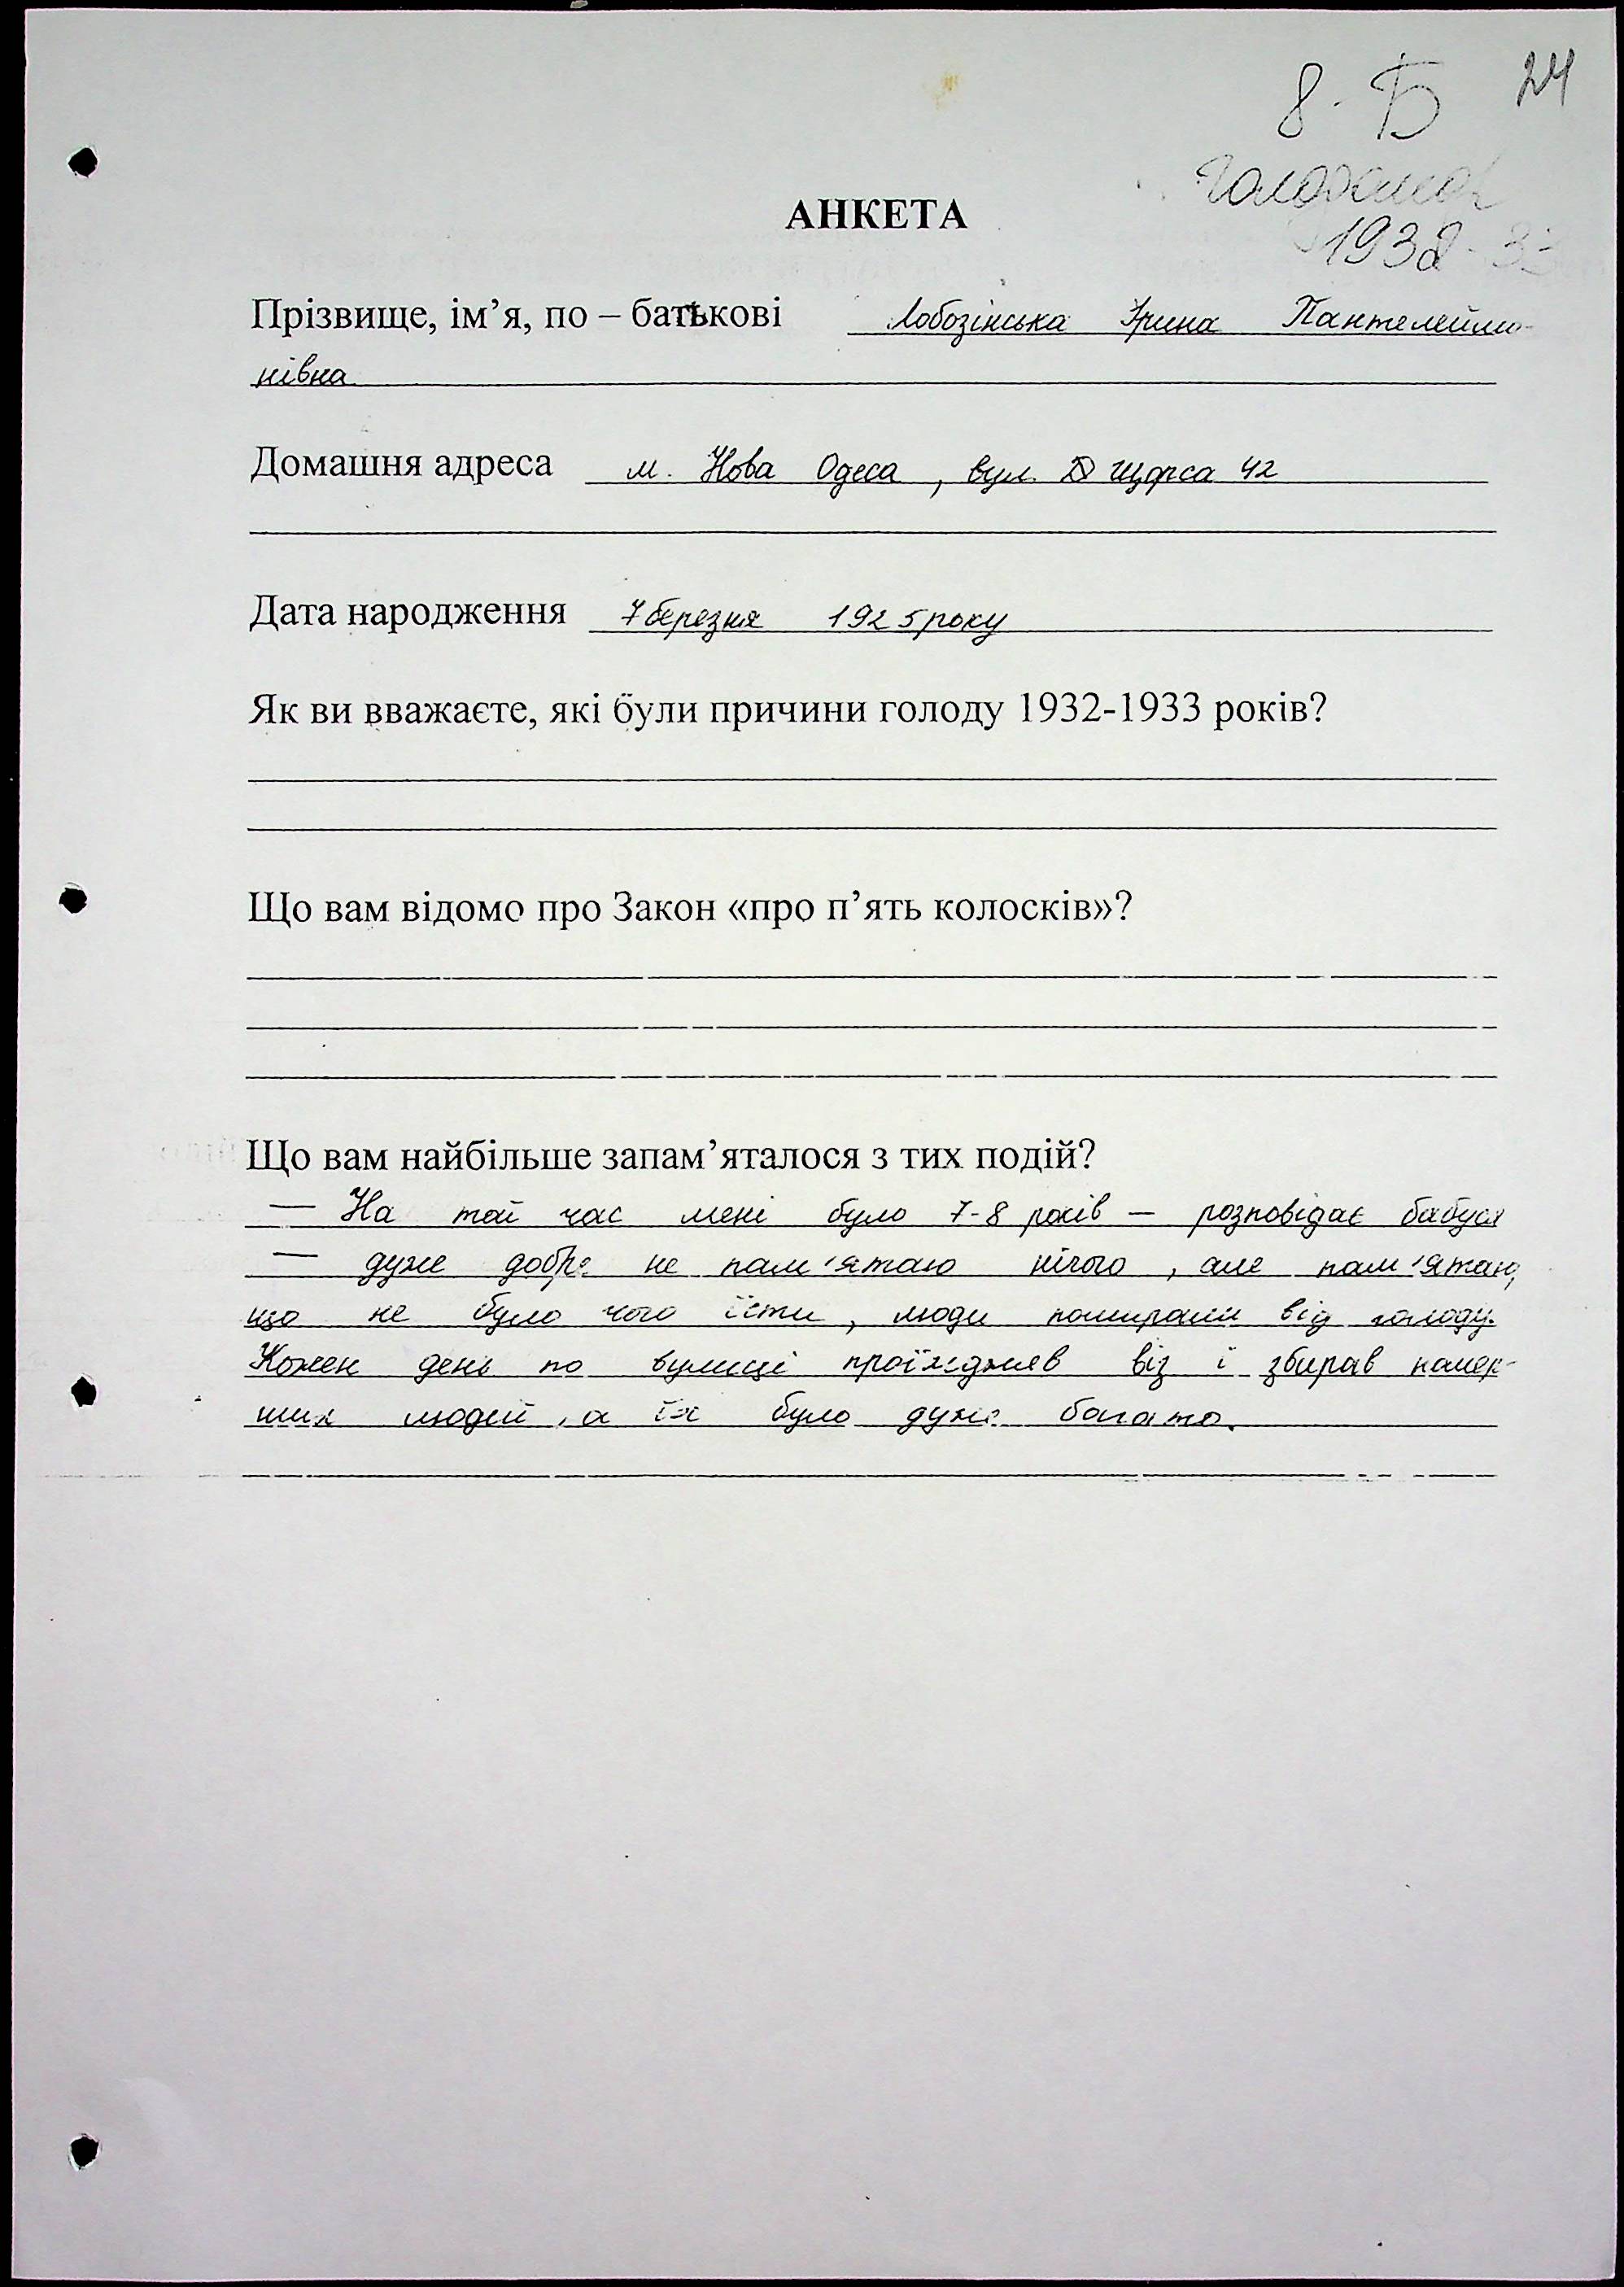 8-Б 24
Голодомор
1932-33
АНКЕТА
Прізвище, ім’я, по – батькові Лобозінська Ірина Пантелеймо-
нівна
Домашня адреса м. Нова Одеса, вул. Щорса 42
Дата народження 7 березня 1925 року
Як ви вважаєте, які були причини голоду 1932-1933 років?
Що вам відомо про Закон «про п’ять колосків»?
Що вам найбільше запам’яталося з тих подій?
— На той час мені було 7-8 років — розповідає бабуся
— дуже добре не пам'ятаю нічого, але пам'ятаю,
що не було чого їсти, люди помирали від голоду.
Кожен день по вулиці проїжджяв віз і збирав помер-
ших людей, а їх було дуже багато.